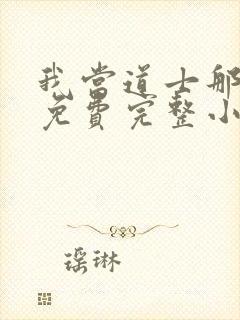 我当道士那
免费完整小
瑶琳